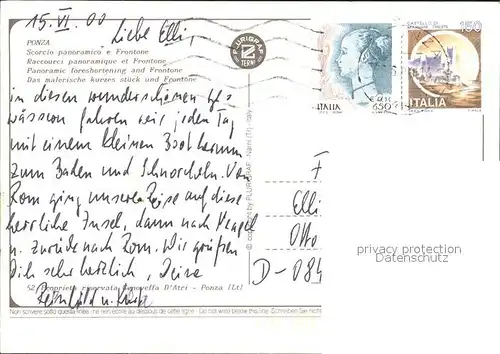 15. VI. 00
Liebe Elli,
PONZA
Scorcio panoramico e Frontone
Raccourci panoramique et Frontone
Panoramic foreshortening and Frontone
Das malerische kurzes stück und Frontone
PLURIGRAF
TERNI
ITALIA
650
CASTELLO DI
150
ITALIA
in diesen wunderschönen
wässern fahren wir jeden Tag
mit einem kleinen Boot herum
zum Baden und Schnorcheln. Von
Rom ging unsere Reise auf diese
herrliche Insel, dann nach
u. zurück nach Rom. Wir grüßen
Dich sehr herzlich, Deine
52 Proprietà riservata D'Atri - Ponza (Lt)
Reinhild u.
copyright by PLURIGRAF - Narni (TR)
Elli
Otto
D-084
privacy protection
Datenschutz
Non scrivere sotto questa linea - ne rien écrire au dessous de cette ligne - Do not write below this line - Schreiben Sie nicht